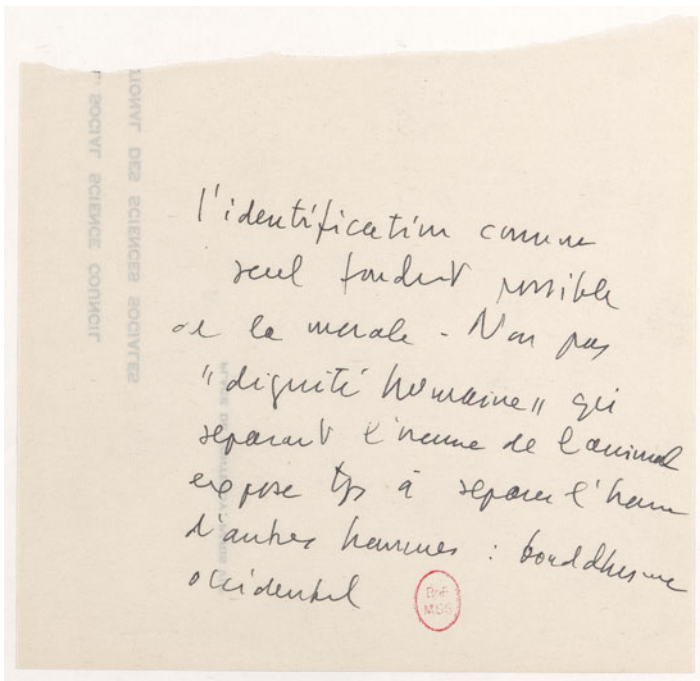 l'identification comme
seul fondemt possible
de la morale - Non pas
"dignité humaine" qui
séparant l'homme de l'animal
expose tjs à séparer l'homme
d'autres hommes : bouddhisme
occidental
BnF
MSS
TIONAL DES SCIENCES SOCIALES
SOCIAL SCIENCE COUNCIL